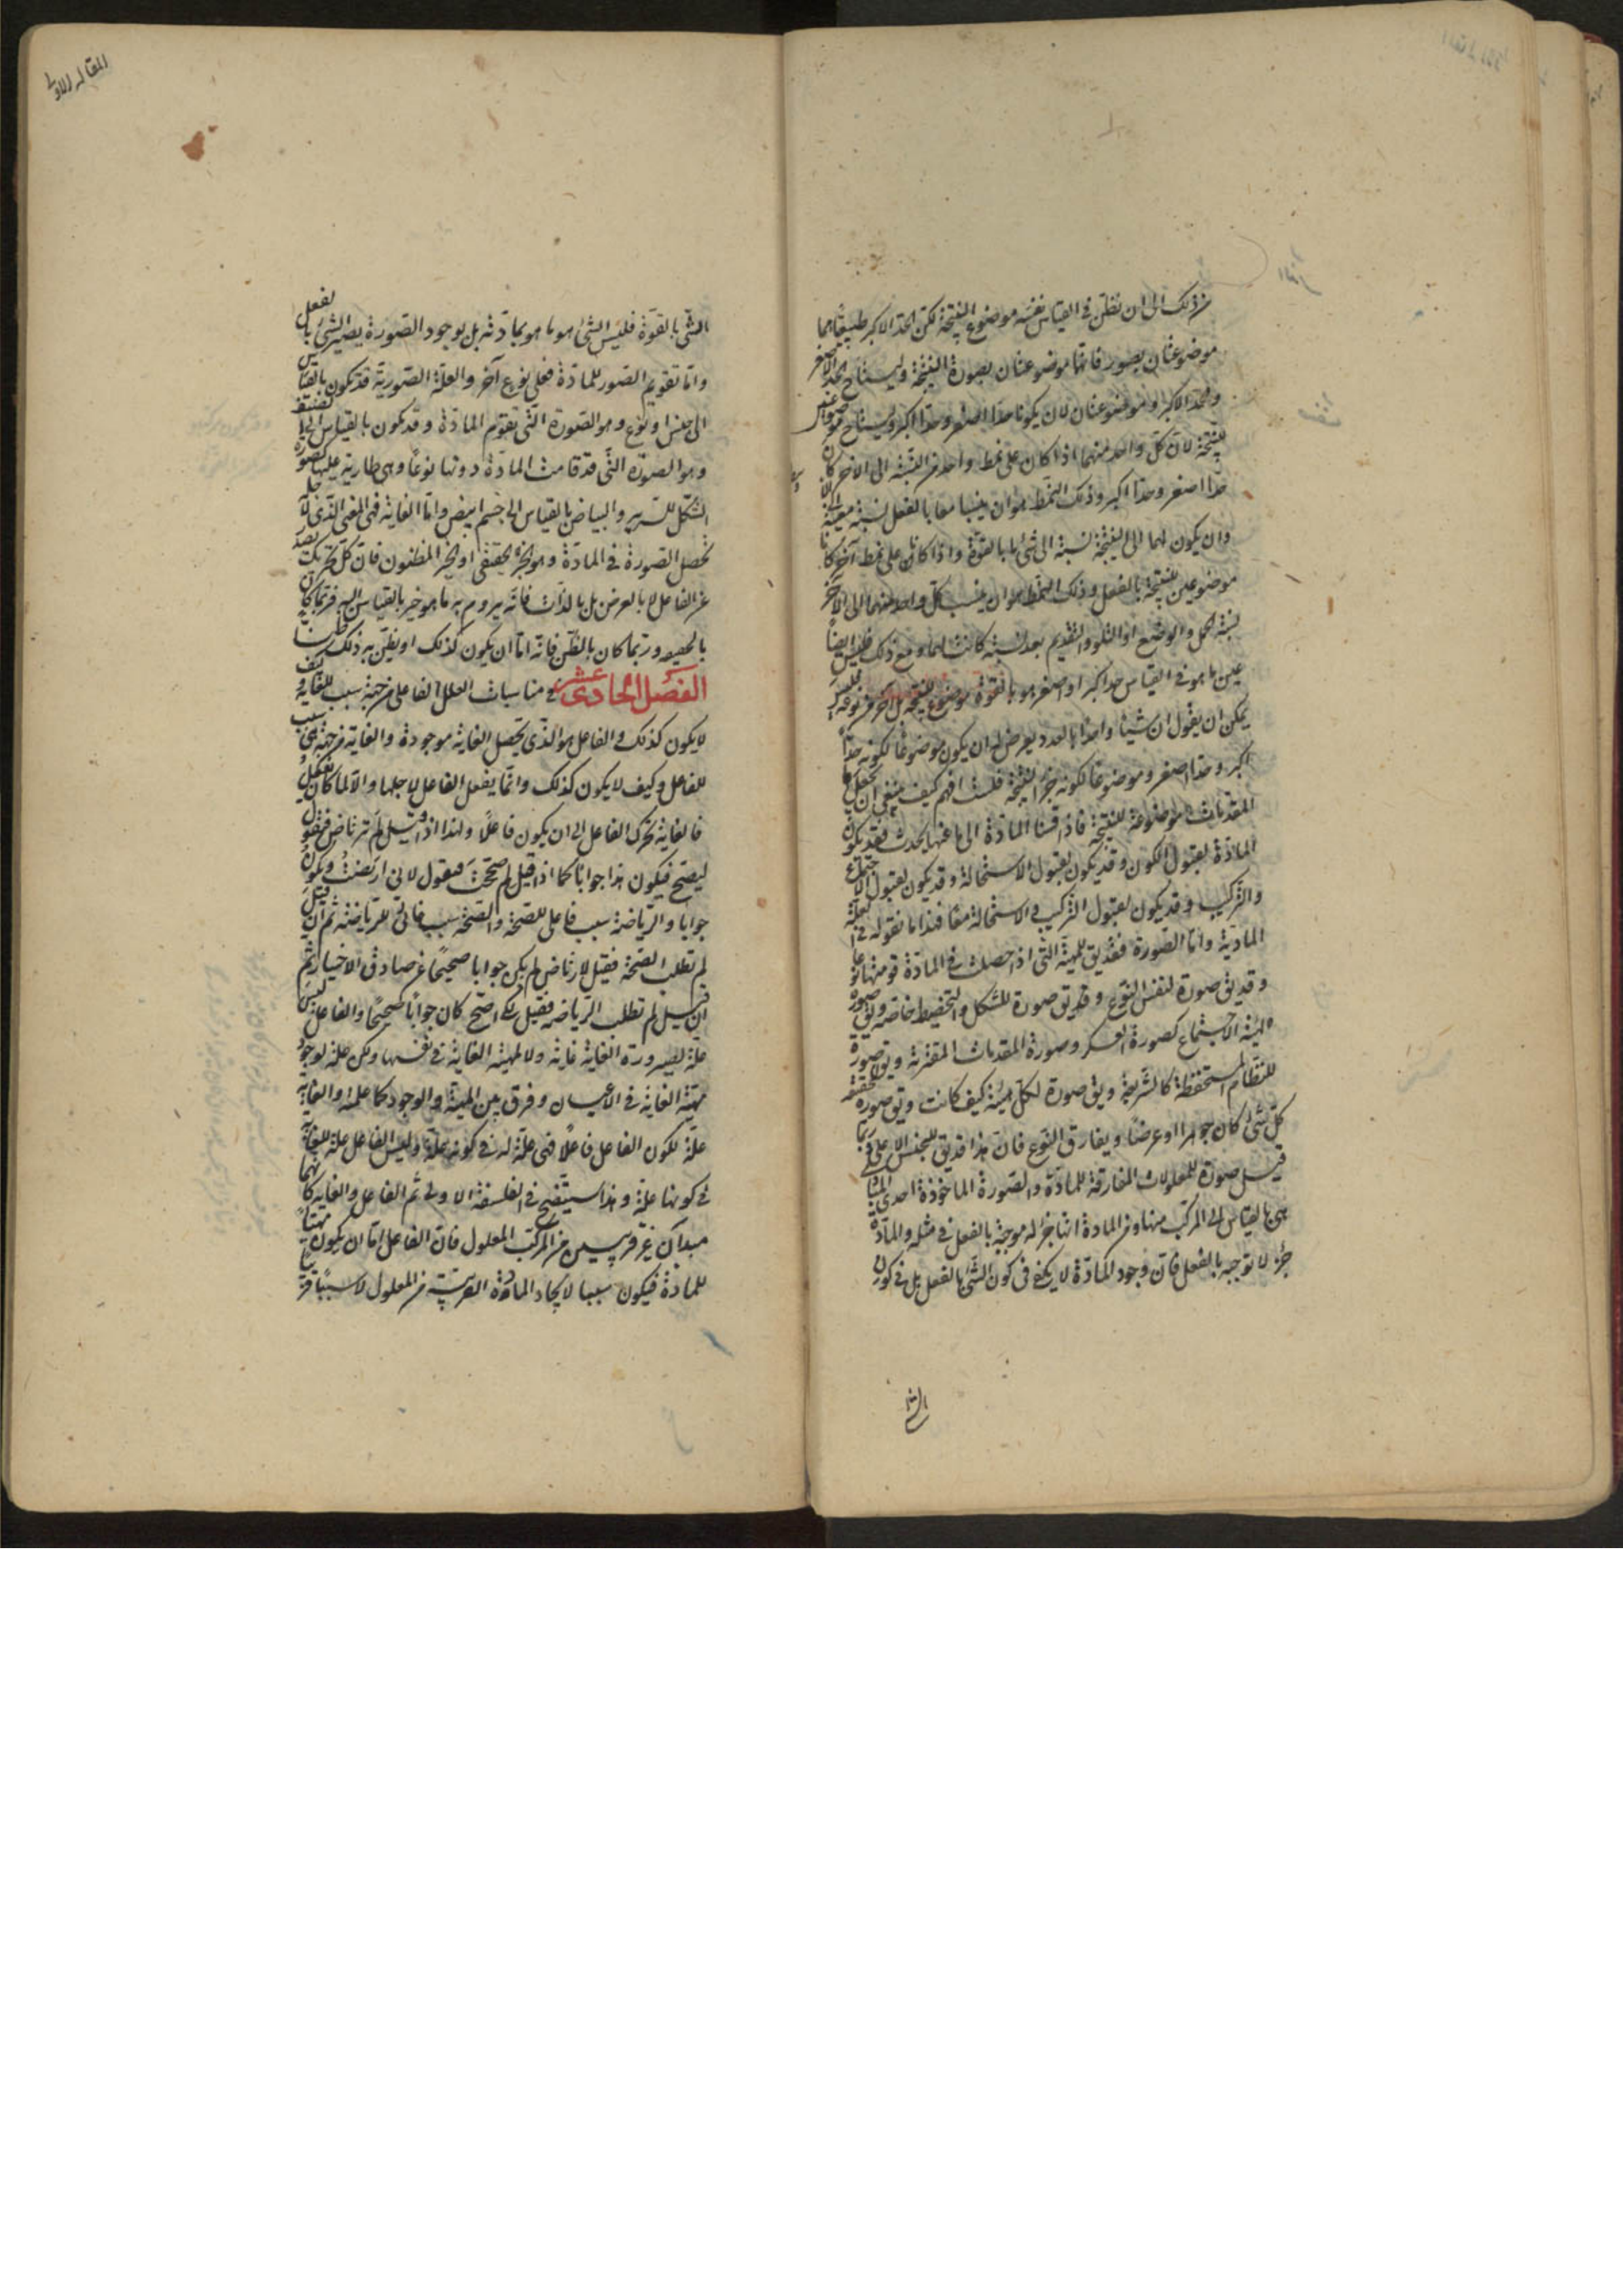 من ذلك الى ان نظن فى القياس نفسه موضوع النتيجة لكن الحد الاكبر طبيعتاهما
موضوعتان بصور فانهما موضوعتان بصورة النتيجة وليستا الحد الاصغر
والحد الاكبر وموضوعتان لان يكونا حدا اصغر وحدا اكبر وليستا موضوعتين
للنتيجة لان كل واحد منهما اذا كان على نمط واحد من النسبة الى الاخر كان
حدا اصغر وحدا اكبر وذلك النمط هو ان ينسبا معا بالفعل نسبة معينة الى
وان يكون لهما الى النتيجة نسبة الى شئ ما بالقوة واذا كانا على نمط آخر كانا
موضوعين للنتيجة بالفعل وذلك النمط هو ان ينسب كل واحد منهما الى الآخر
نسبة الحمل والوضع او التلو والتقديم بعد نسبة كانت لهما ومع ذلك فليس ايضا
عين ما هو فى القياس حد اكبر او اصغر هو بالقوة موضوع للنتيجة بل آخر من نوعه فليس
يمكن ان يقول ان شيئا واحدا بالعدد يعرض له ان يكون موضوعا لكونه حدا
اكبر وحدا اصغر وموضوعا لكونه جزء النتيجة فلست افهم كيف ينبغى ان يجعل
المقدمات موضوعة للنتيجة فاذا قسنا المادة الى ما عنها يحدث فقد يكون
المادة لقبول الكون وقد يكون لقبول الاستحالة وقد يكون لقبول الاجتماع
والتركيب وقد يكون لقبول التركيب والاستحالة معا فهذا ما نقوله فى العلة
المادية واما الصورة فقد يق للهيئة التى اذا حصلت فى المادة قومتها نوعا
وقد يق صورة لنفس النوع وقد يق صورة للشكل والتخطيط خاصة ويق صورة
لهيئة الاجتماع كصورة العسكر وصورة المقدمات المقترنة ويق صورة
للنظام المستحفظ كالشريعة ويق صورة لكل هيئة كيف كانت ويق صورة لحقيقة
كل شئ كان جوهرا او عرضا ويفارق النوع فان هذا قد يق للجنس الاعلى وربما
قيل صورة للمعقولات المفارقة للمادة والصورة الماخوذة احدى المبادى
هى بالقياس الى المركب منها ومن المادة انها جزء له موجبة بالفعل فى مثله والمادة
جزء لا توجبه بالفعل فان وجود المادة لا يكفى فى كون الشئ بالفعل بل فى كون
الشئ
المقاله الاولى
الشئ بالقوة فليس الشئ هو ما هو بمادته بل بوجود الصورة يصير الشئ بالفعل
واما تقويم الصور للمادة فعلى نوع آخر والعلة الصورية قد تكون بالقياس
الى جنس او نوع وهو الصورة التى تقوم المادة وقد تكون بالقياس الى الصنف
وهو الصورة التى قد قامت المادة دونها نوعا وهى طارية عليها كصورة
الشكل للسرير والبياض بالقياس الى جسم ابيض واما الغاية فهى المعنى الذى لاجله
تحصل الصورة فى المادة وهو الخير الحقيقى او الخير المظنون فان كل تحريك يصدر
عن الفاعل لا بالعرض بل بالذات فانه يروم به ما هو خير بالقياس اليه فربما كان
بالحقيقة وربما كان بالظن فانه اما ان يكون كذلك او يظن به ذلك ظنا
الفصل الحادى عشر فى مناسبات العلل الفاعل من جهة سبب للغاية وكيف
لا يكون كذلك والفاعل هو الذى يحصل الغاية موجودة والغاية من جهة هى سبب
للفاعل وكيف لا يكون كذلك وانما يفعل الفاعل لاجلها والا لما كان يفعل
فالغاية تحرك الفاعل الى ان يكون فاعلا ولهذا اذا قيل لم ترتاض فيقول
ليصح فيكون هذا جوابا كما اذا قيل لم صححت فيقول لانى ارتضت ويكون
جوابا والرياضة سبب فاعلى للصحة والصحة سبب غائى للرياضة ثم ان قيل
لم تطلب الصحة فقيل لارتاض لم يكن جوابا صحيحا عن صادق الاختيار ثم
ان قيل لم تطلب الرياضة فقيل لكى اصح كان جوابا صحيحا والفاعل ليس
علة لصيرورة الغاية غاية ولا لمهية الغاية فى نفسها ولكن علة لوجود
مهية الغاية فى الاعيان وفرق بين المهية والوجود كما علمته والغاية
علة لكون الفاعل فاعلا فهى علة له فى كونه علة وليس الفاعل علة للغاية
فى كونها علة وهذا سيتضح فى الفلسفة الاولى ثم الفاعل والغاية كانهما
مبدآن غير قريبين من المركب المعلول فان الفاعل اما ان يكون مهيئا
للمادة فيكون سببا لايجاد المادة القريبة من المعلول لا سببا قريبا